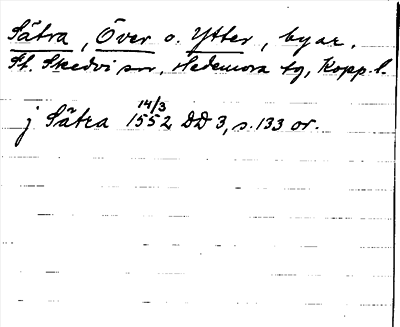 Sätra, Över o. Ytter, byar,
St. Skedvi sn, Hedemora tg, Kopp. l.
14/3
j Sätra 1552 DD 3, s. 133 or.